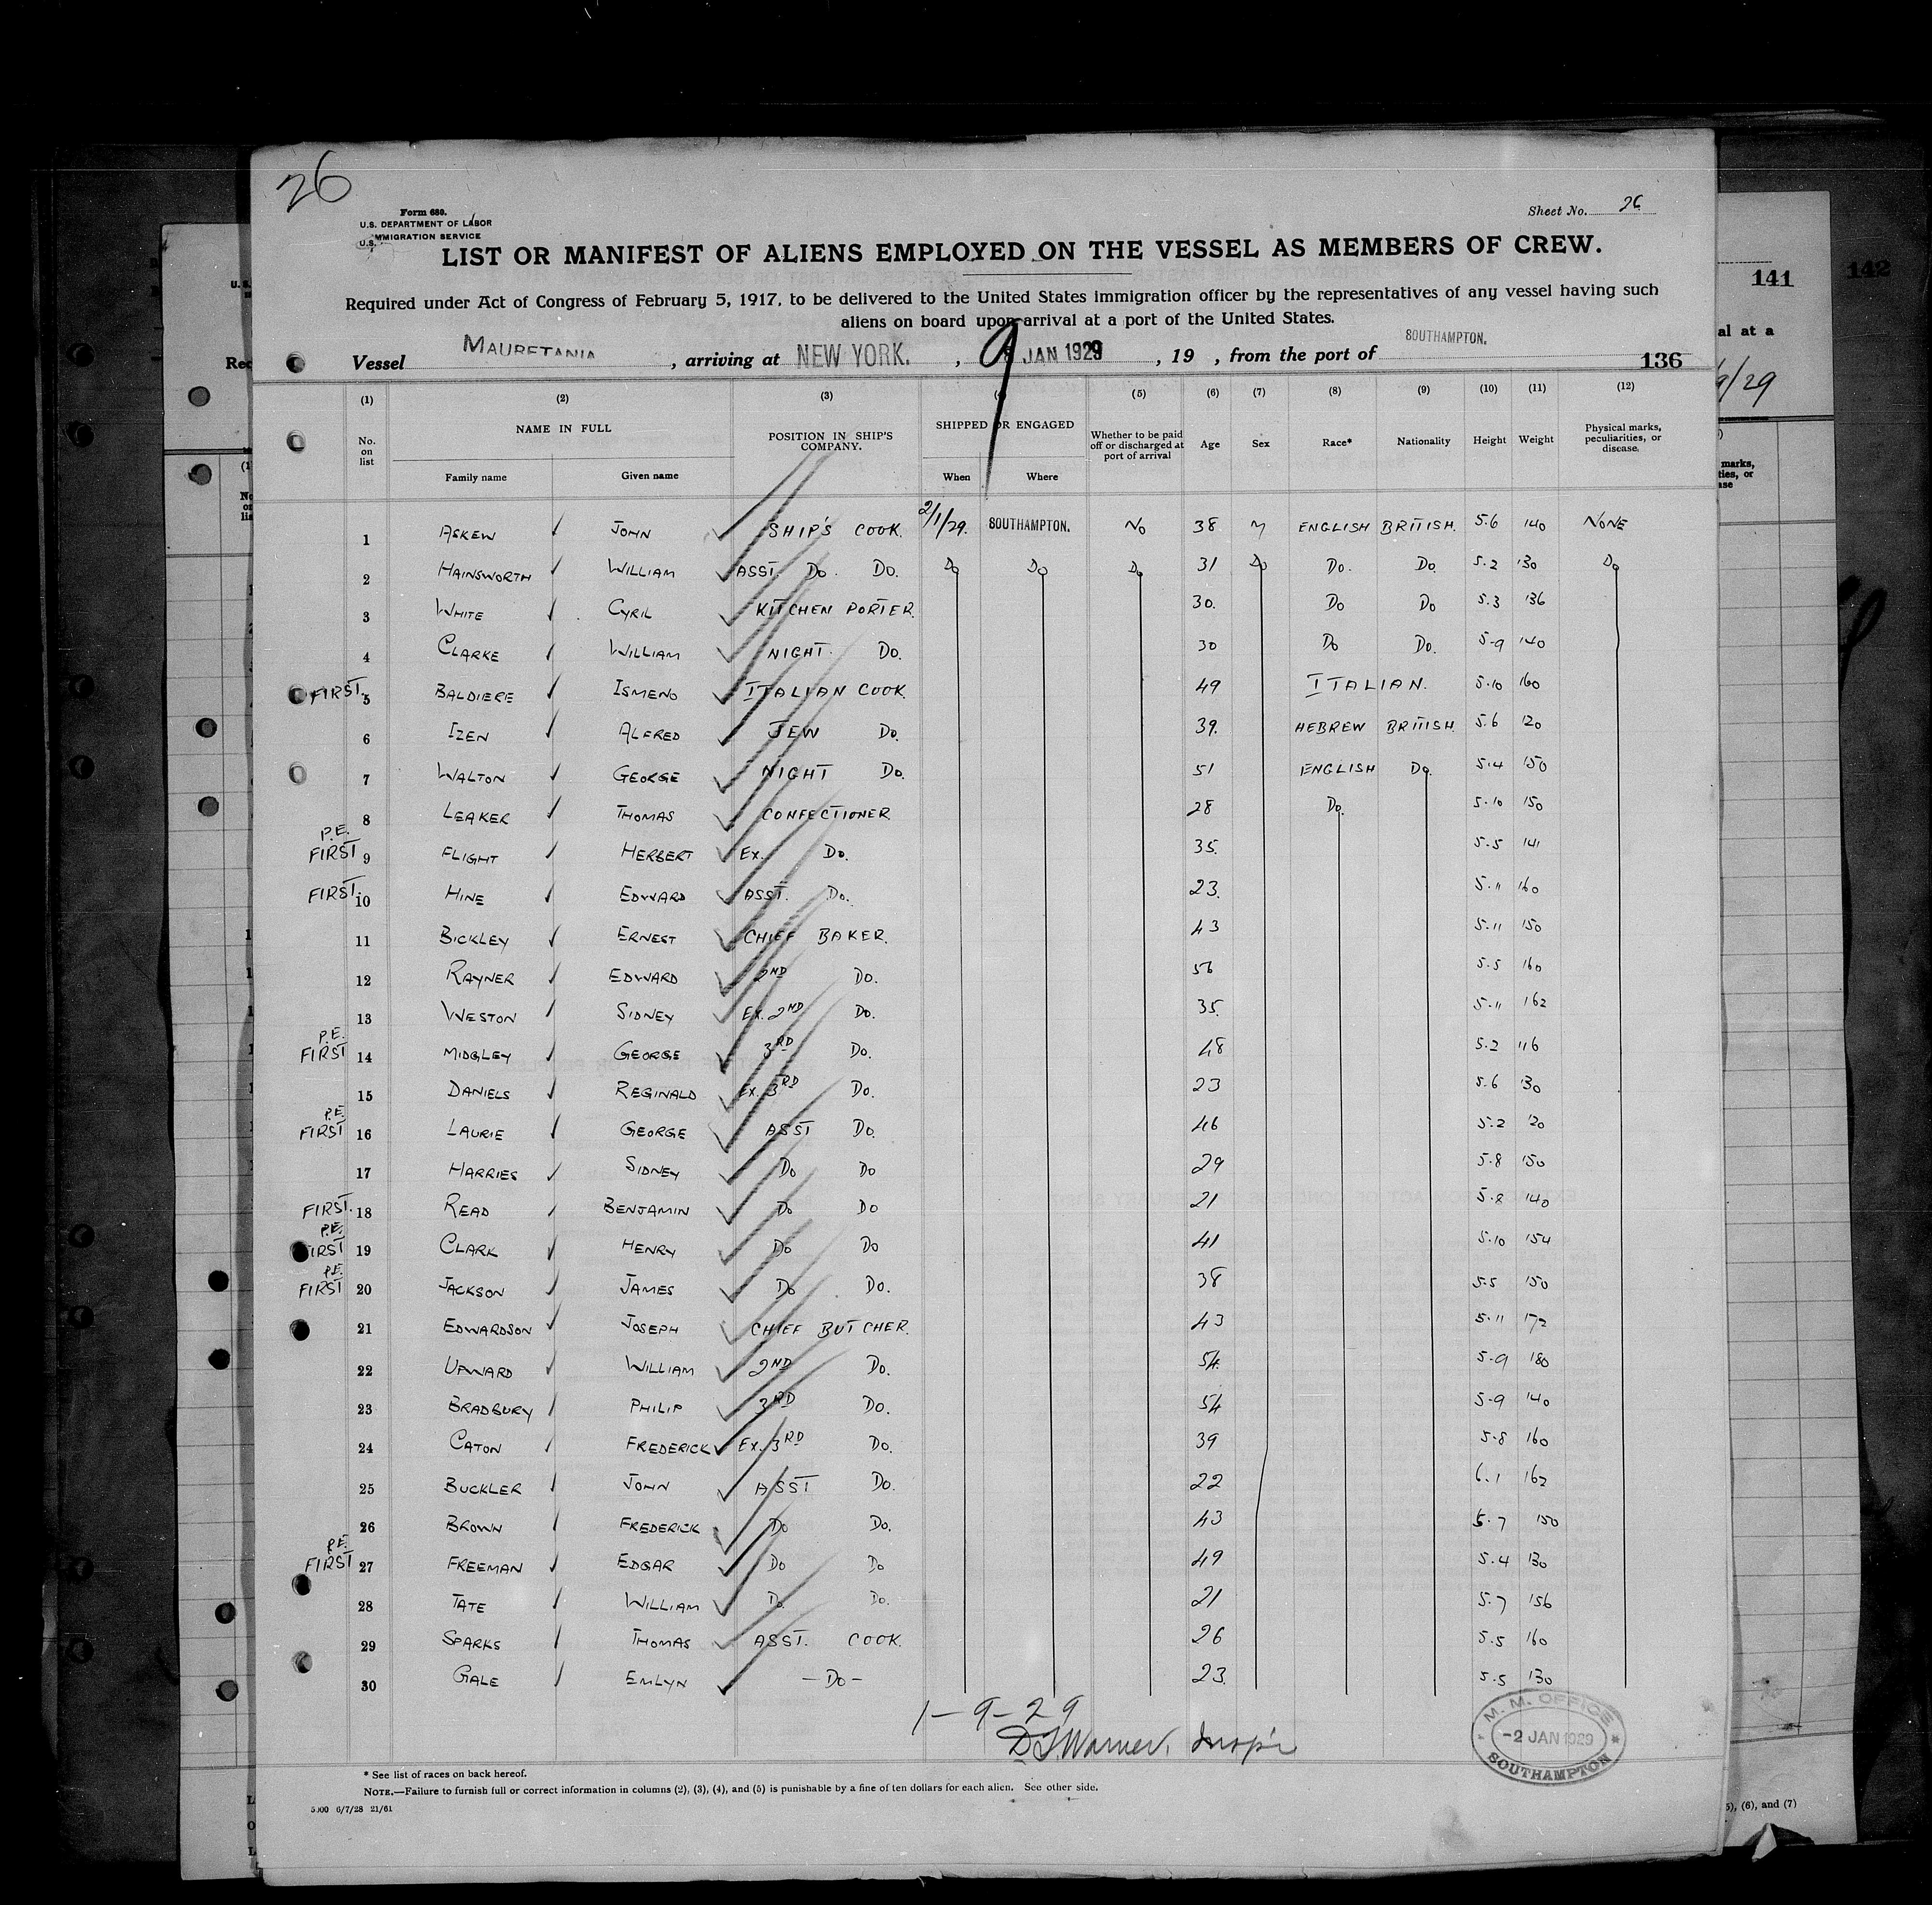 26
Form 680.
U.S. DEPARTMENT OF LABOR
U.S. IMMIGRATION SERVICE
Sheet No. 26
LIST OR MANIFEST OF ALIENS EMPLOYED ON THE VESSEL AS MEMBERS OF CREW.
Required under Act of Congress of February 5, 1917, to be delivered to the United States immigration officer by the representatives of any vessel having such
aliens on board upon arrival at a port of the United States.
Vessel MAURETANIA, arriving at NEW YORK., 9 JAN 1929, 19 , from the port of SOUTHAMPTON. 136
(1) (2) (3) (4) (5) (6) (7) (8) (9) (10) (11) (12)
No. on list NAME IN FULL POSITION IN SHIP'S COMPANY. SHIPPED OR ENGAGED Whether to be paid off or discharged at port of arrival Age Sex Race* Nationality Height Weight Physical marks, peculiarities, or disease.
Family name Given name When Where
1 ASKEW JOHN SHIP'S COOK. 2/1/29. SOUTHAMPTON. NO 38 M ENGLISH BRITISH. 5.6 140 NONE
2 HAINSWORTH WILLIAM ASST. DO. DO. DO DO DO 31 DO DO. DO. 5.2 130 DO
3 WHITE CYRIL KITCHEN PORTER. 30. DO DO 5.3 136
4 CLARKE WILLIAM NIGHT. DO. 30 DO DO. 5.9 140
FIRST. 5 BALDIERE ISMENO ITALIAN COOK. 49 ITALIAN. 5.10 160
6 IZEN ALFRED JEW DO. 39. HEBREW BRITISH. 5.6 120
7 WALTON GEORGE NIGHT DO. 51 ENGLISH DO. 5.4 150
8 LEAKER THOMAS CONFECTIONER 28 DO. 5.10 150
P.E.
FIRST 9 FLIGHT HERBERT EX. DO. 35. 5.5 141
FIRST. 10 HINE EDWARD ASST. DO. 23. 5.11 160
11 BICKLEY ERNEST CHIEF BAKER. 43 5.11 150
12 RAYNER EDWARD 2ND DO. 56 5.5 160
13 WESTON SIDNEY EX. 2ND DO. 35. 5.11 162
P.E.
FIRST 14 MIDGLEY GEORGE 3RD DO. 48 5.2 116
15 DANIELS REGINALD EX. 3RD DO. 23 5.6 130
P.E.
FIRST 16 LAURIE GEORGE ASST DO. 46 5.2 120
17 HARRIES SIDNEY DO DO 29 5.8 150
FIRST. 18 READ BENJAMIN DO DO 21 5.8 140
P.E.
FIRST 19 CLARK HENRY DO DO 41 5.10 154
P.E.
FIRST 20 JACKSON JAMES DO DO. 38 5.5 150
21 EDWARDSON JOSEPH CHIEF BUTCHER. 43 5.11 172
22 UPWARD WILLIAM 2ND DO. 54. 5.9 180
23 BRADBURY PHILIP 3RD DO. 54 5.9 140
24 CATON FREDERICK EX. 3RD DO. 39 5.8 160
25 BUCKLER JOHN ASST DO. 22 6.1 162
26 BROWN FREDERICK DO DO. 43 5.7 150
P.E.
FIRST 27 FREEMAN EDGAR DO DO 49 5.4 130
28 TATE WILLIAM DO. DO. 21 5.7 156
29 SPARKS THOMAS ASST. COOK. 26 5.5 160
30 GALE EMLYN - DO - 23. 5.5 130
1-9-29
Warner, Insp'r
M. M. OFFICE
-2 JAN 1929
SOUTHAMPTON
* See list of races on back hereof.
NOTE.—Failure to furnish full or correct information in columns (2), (3), (4), and (5) is punishable by a fine of ten dollars for each alien. See other side.
5000 6/7/28 21/61
141
142
al at a
9/29
marks,
ties, or
ase
5), (6), and (7)